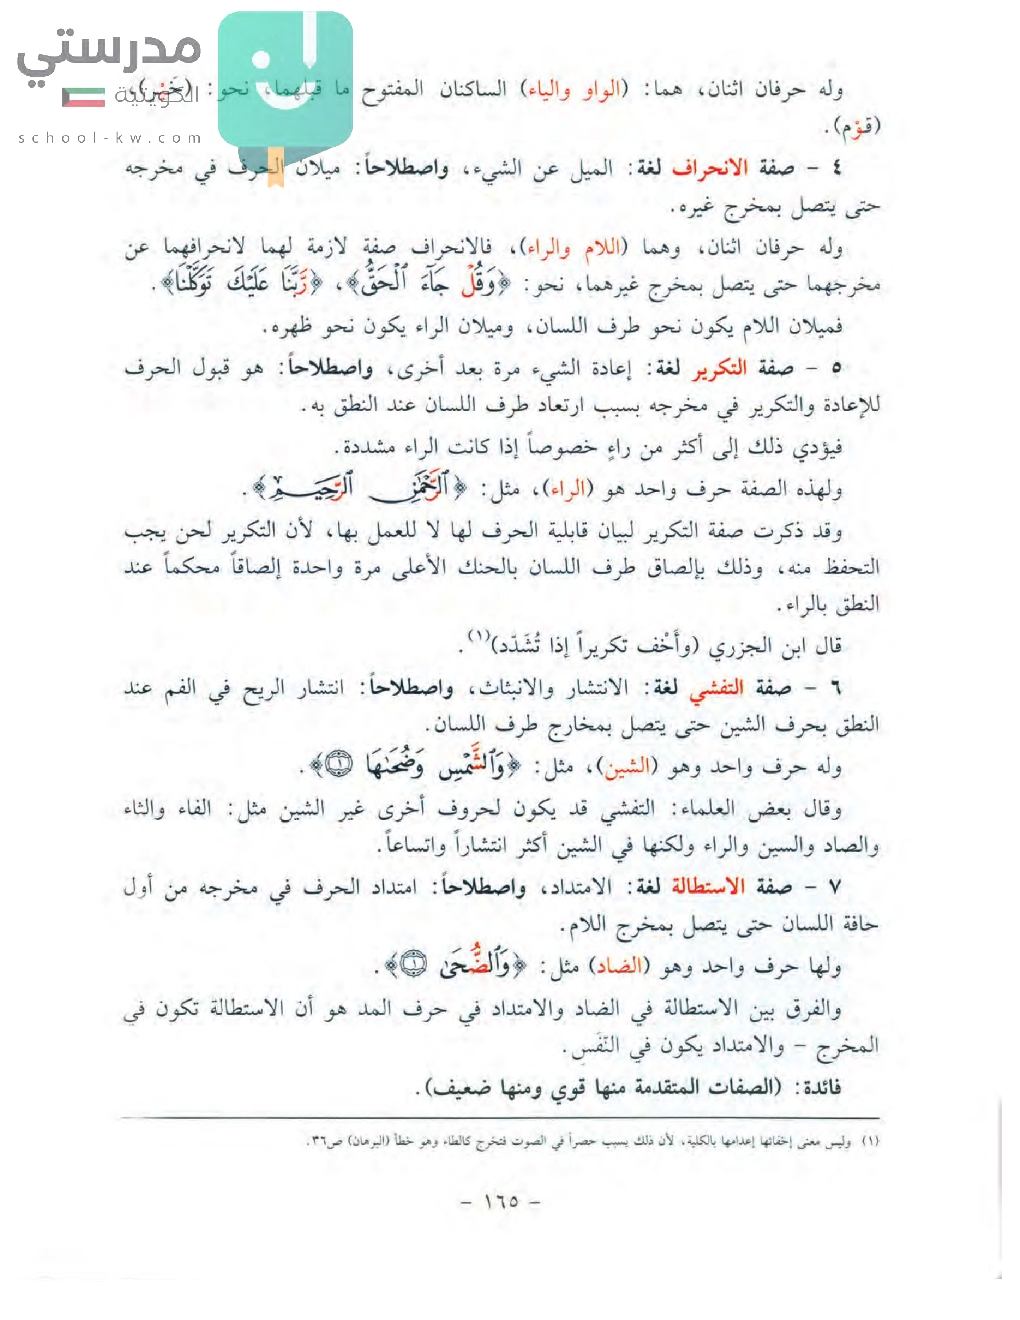 مدرستي
الكويتية
school-kw.com
وله حرفان اثنان، هما: (الواو والياء) الساكنان المفتوح ما قبلهما، نحو: (خَيْر)،
(قوْم).
٤ - صفة الانحراف لغة: الميل عن الشيء، واصطلاحاً: ميلان الحرف في مخرجه
حتى يتصل بمخرج غيره.
وله حرفان اثنان، وهما (اللام والراء)، فالانحراف صفة لازمة لهما لانحرافهما عن
مخرجهما حتى يتصل بمخرج غيرهما، نحو: ﴿وَقُلْ جَآءَ ٱلْحَقُّ﴾، ﴿رَّبَّنَا عَلَيْكَ تَوَكَّلْنَا﴾.
فميلان اللام يكون نحو طرف اللسان، وميلان الراء يكون نحو ظهره.
٥ - صفة التكرير لغة: إعادة الشيء مرة بعد أخرى، واصطلاحاً: هو قبول الحرف
للإعادة والتكرير في مخرجه بسبب ارتعاد طرف اللسان عند النطق به.
فيؤدي ذلك إلى أكثر من راءٍ خصوصاً إذا كانت الراء مشددة.
ولهذه الصفة حرف واحد هو (الراء)، مثل: ﴿ٱلرَّحْمَٰنِ ٱلرَّحِيمِ﴾.
وقد ذكرت صفة التكرير لبيان قابلية الحرف لها لا للعمل بها، لأن التكرير لحن يجب
التحفظ منه، وذلك بإلصاق طرف اللسان بالحنك الأعلى مرة واحدة إلصاقاً محكماً عند
النطق بالراء.
قال ابن الجزري (وأَخْف تكريراً إذا تُشَدّد)(١).
٦ - صفة التفشي لغة: الانتشار والانبثاث، واصطلاحاً: انتشار الريح في الفم عند
النطق بحرف الشين حتى يتصل بمخارج طرف اللسان.
وله حرف واحد وهو (الشين)، مثل: ﴿وَٱلشَّمْسِ وَضُحَىٰهَا ١﴾.
وقال بعض العلماء: التفشي قد يكون لحروف أخرى غير الشين مثل: الفاء والثاء
والصاد والسين والراء ولكنها في الشين أكثر انتشاراً واتساعاً.
٧ - صفة الاستطالة لغة: الامتداد، واصطلاحاً: امتداد الحرف في مخرجه من أول
حافة اللسان حتى يتصل بمخرج اللام.
ولها حرف واحد وهو (الضاد) مثل: ﴿وَٱلضُّحَىٰ ١﴾.
والفرق بين الاستطالة في الضاد والامتداد في حرف المد هو أن الاستطالة تكون في
المخرج - والامتداد يكون في النّفَس.
فائدة: (الصفات المتقدمة منها قوي ومنها ضعيف).
(١) وليس معنى إخفائها إعدامها بالكلية، لأن ذلك يسبب حصراً في الصوت فتخرج كالطاء وهو خطأ (البرهان) ص٣٦.
- ١٦٥ -